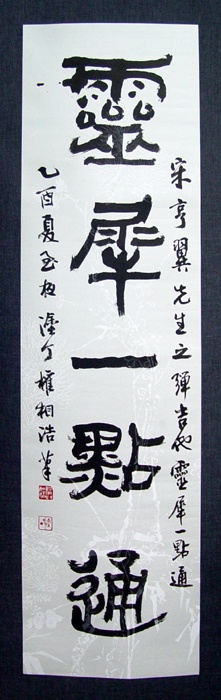 宋亨翼先生之彈吉他靈犀一點通
靈犀一點通
乙酉夏至夜塗丁權相浩筆